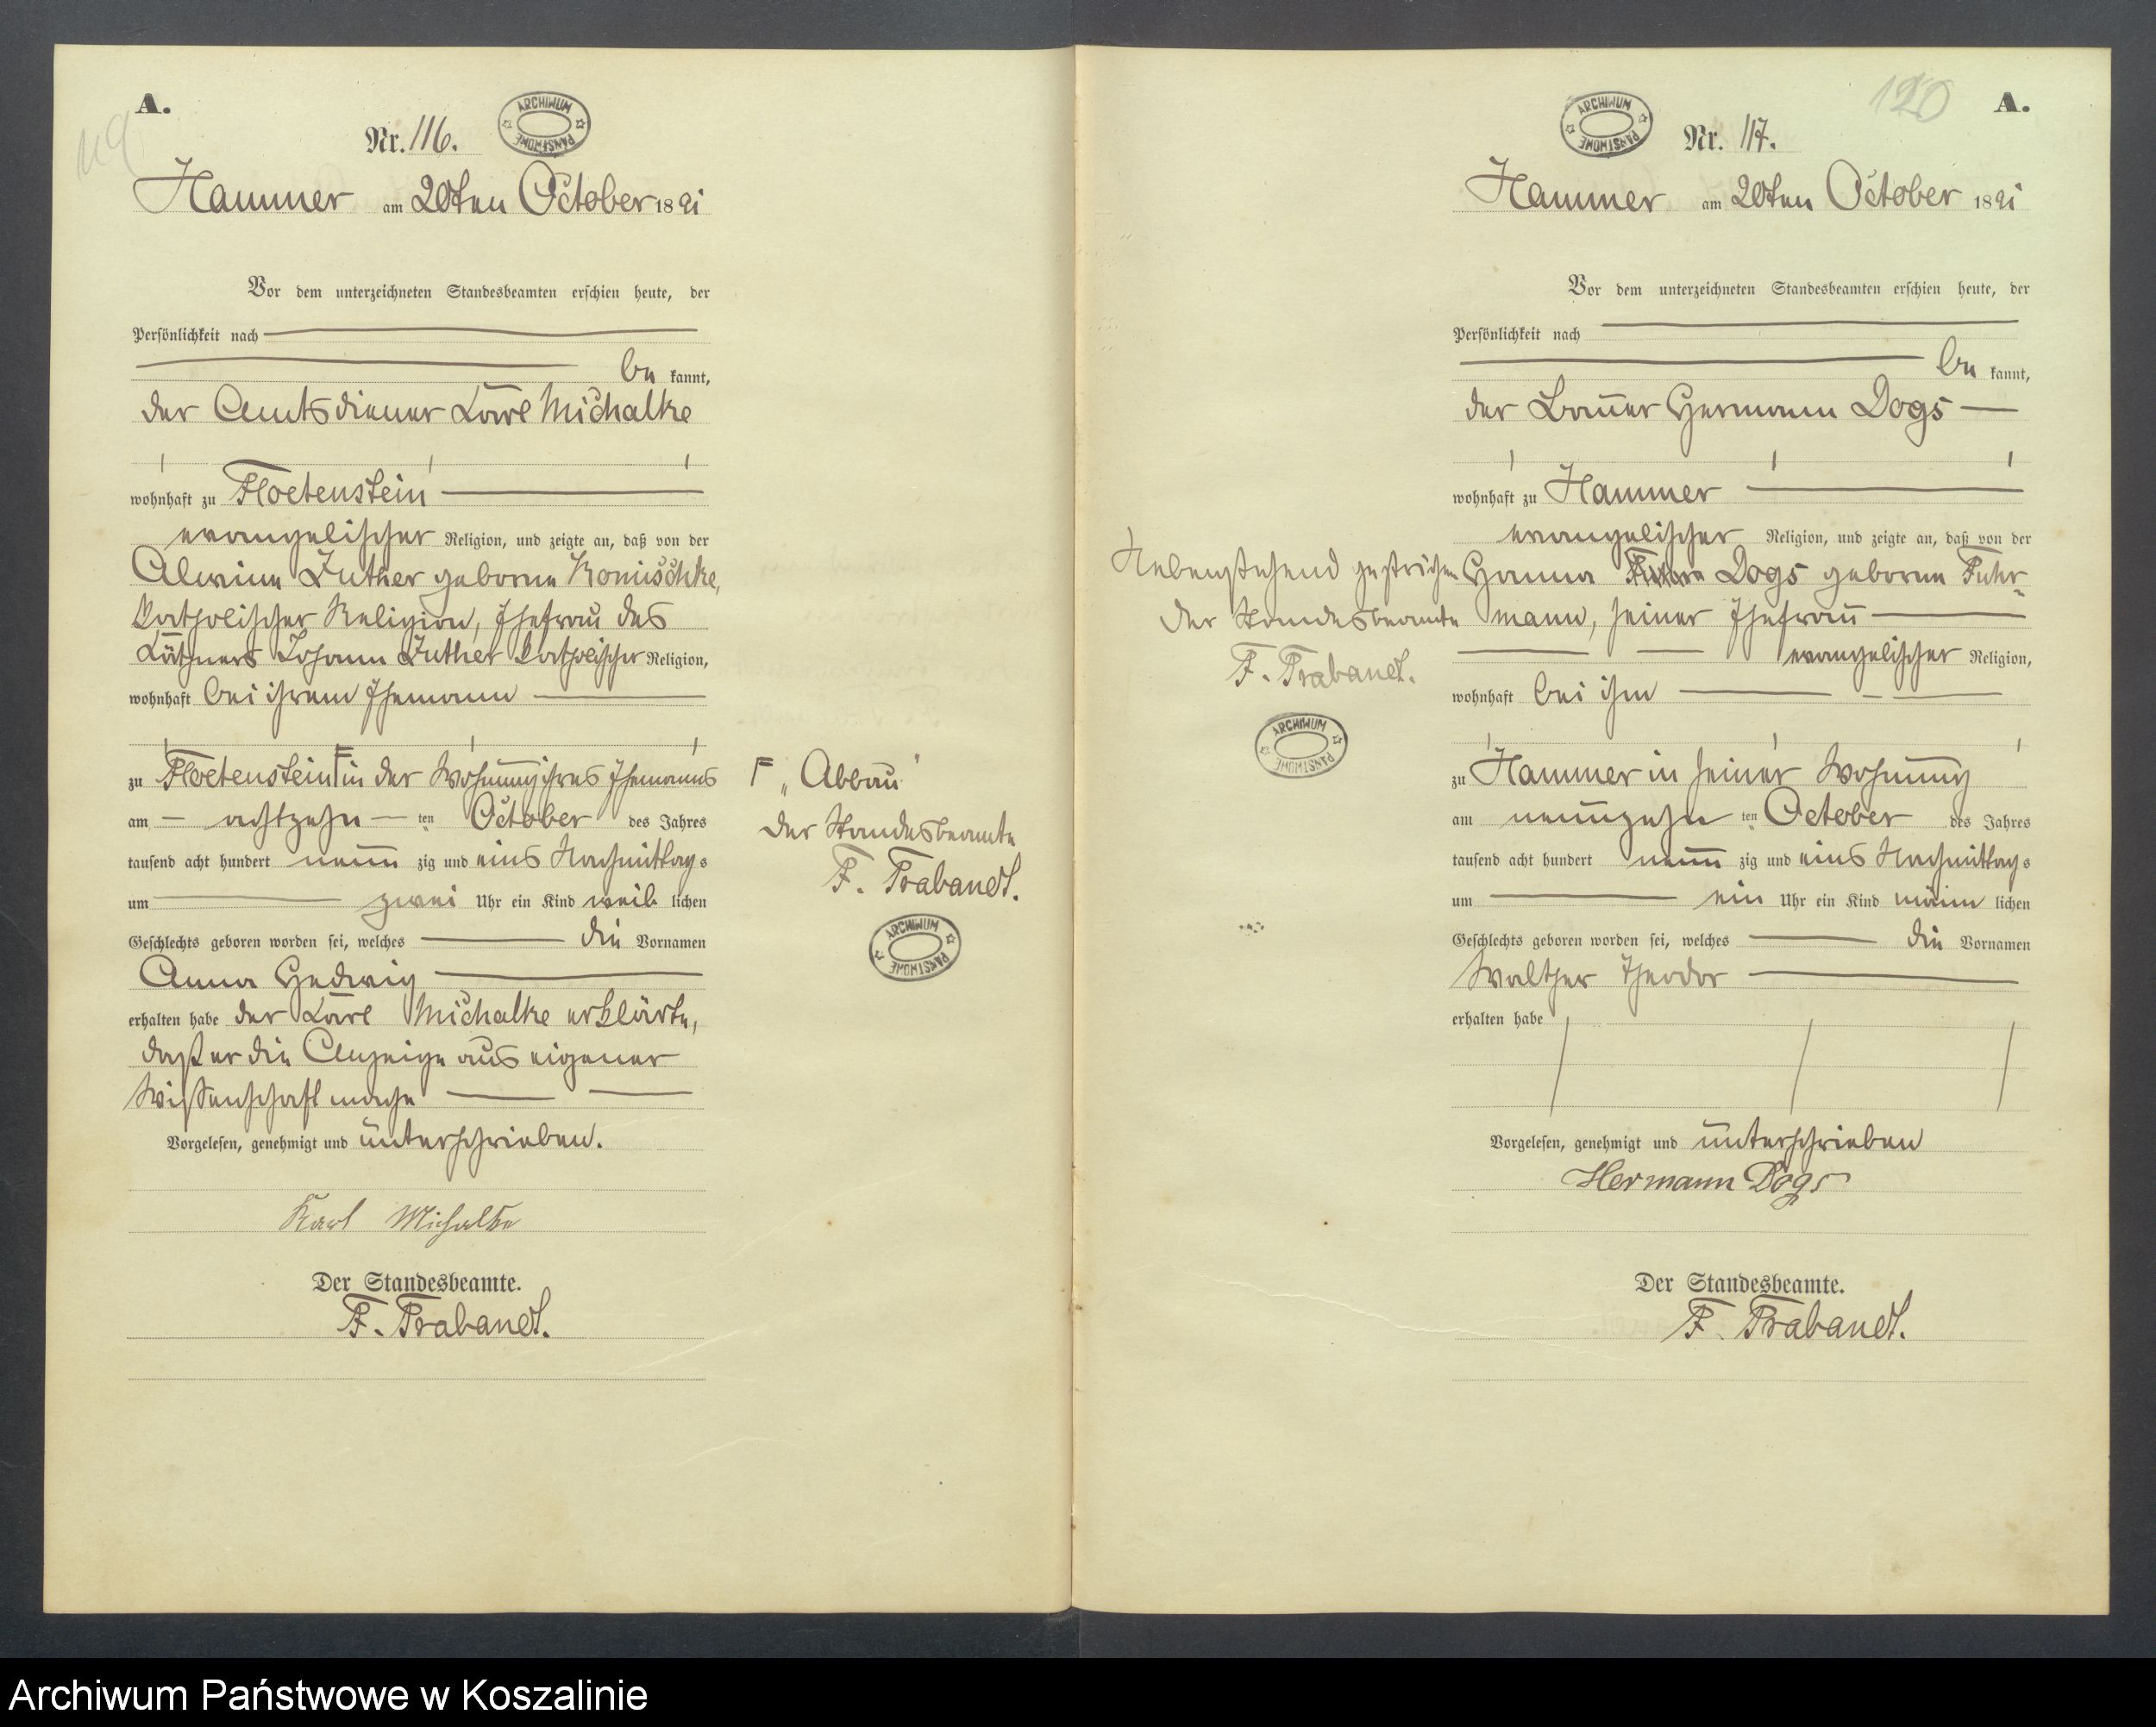 A.
119
Nr. 116.
ARCHIWUM PAŃSTWOWE
Hammer am 20ten October 1891
Vor dem unterzeichneten Standesbeamten erschien heute, der
Persönlichkeit nach
be kannt,
der Amtsdiener Karl Michalke
wohnhaft zu Floetenstein
evangelischer Religion, und zeigte an, daß von der
Alwine Luther geborne Komischke,
katholischer Religion, Ehefrau des
Käthners Johann Luther katholischer Religion,
wohnhaft bei ihrem Ehemann
zu Floetenstein F in der Wohnung ihres Ehemanns
am achtzehn ten October des Jahres
tausend acht hundert neun zig und eins Nachmittags
um zwei Uhr ein Kind weib lichen
Geschlechts geboren worden sei, welches die Vornamen
Anna Hedwig
erhalten habe der Karl Michalke erklärte,
daß er die Anzeige aus eigener
Wissenschaft mache
Vorgelesen, genehmigt und unterschrieben.
Karl Michalke
Der Standesbeamte.
F. Trabandt.
F „Abbau"
Der Standesbeamte
F. Trabandt.
ARCHIWUM PAŃSTWOWE
120
A.
ARCHIWUM PAŃSTWOWE
Nr. 117.
Hammer am 20ten October 1891
Vor dem unterzeichneten Standesbeamten erschien heute, der
Persönlichkeit nach
be kannt,
der Bauer Hermann Dogs
wohnhaft zu Hammer
evangelischer Religion, und zeigte an, daß von der
Hanna Dogs geborne Fuhr-
mann, seiner Ehefrau
evangelischer Religion,
wohnhaft bei ihm
zu Hammer in seiner Wohnung
am neunzehn ten October des Jahres
tausend acht hundert neun zig und eins Nachmittags
um ein Uhr ein Kind männ lichen
Geschlechts geboren worden sei, welches die Vornamen
Walther Theodor
erhalten habe
Vorgelesen, genehmigt und unterschrieben
Hermann Dogs
Der Standesbeamte.
F. Trabandt.
Nebenstehend gestrichen
Der Standesbeamte
F. Trabandt.
ARCHIWUM PAŃSTWOWE
Archiwum Państwowe w Koszalinie